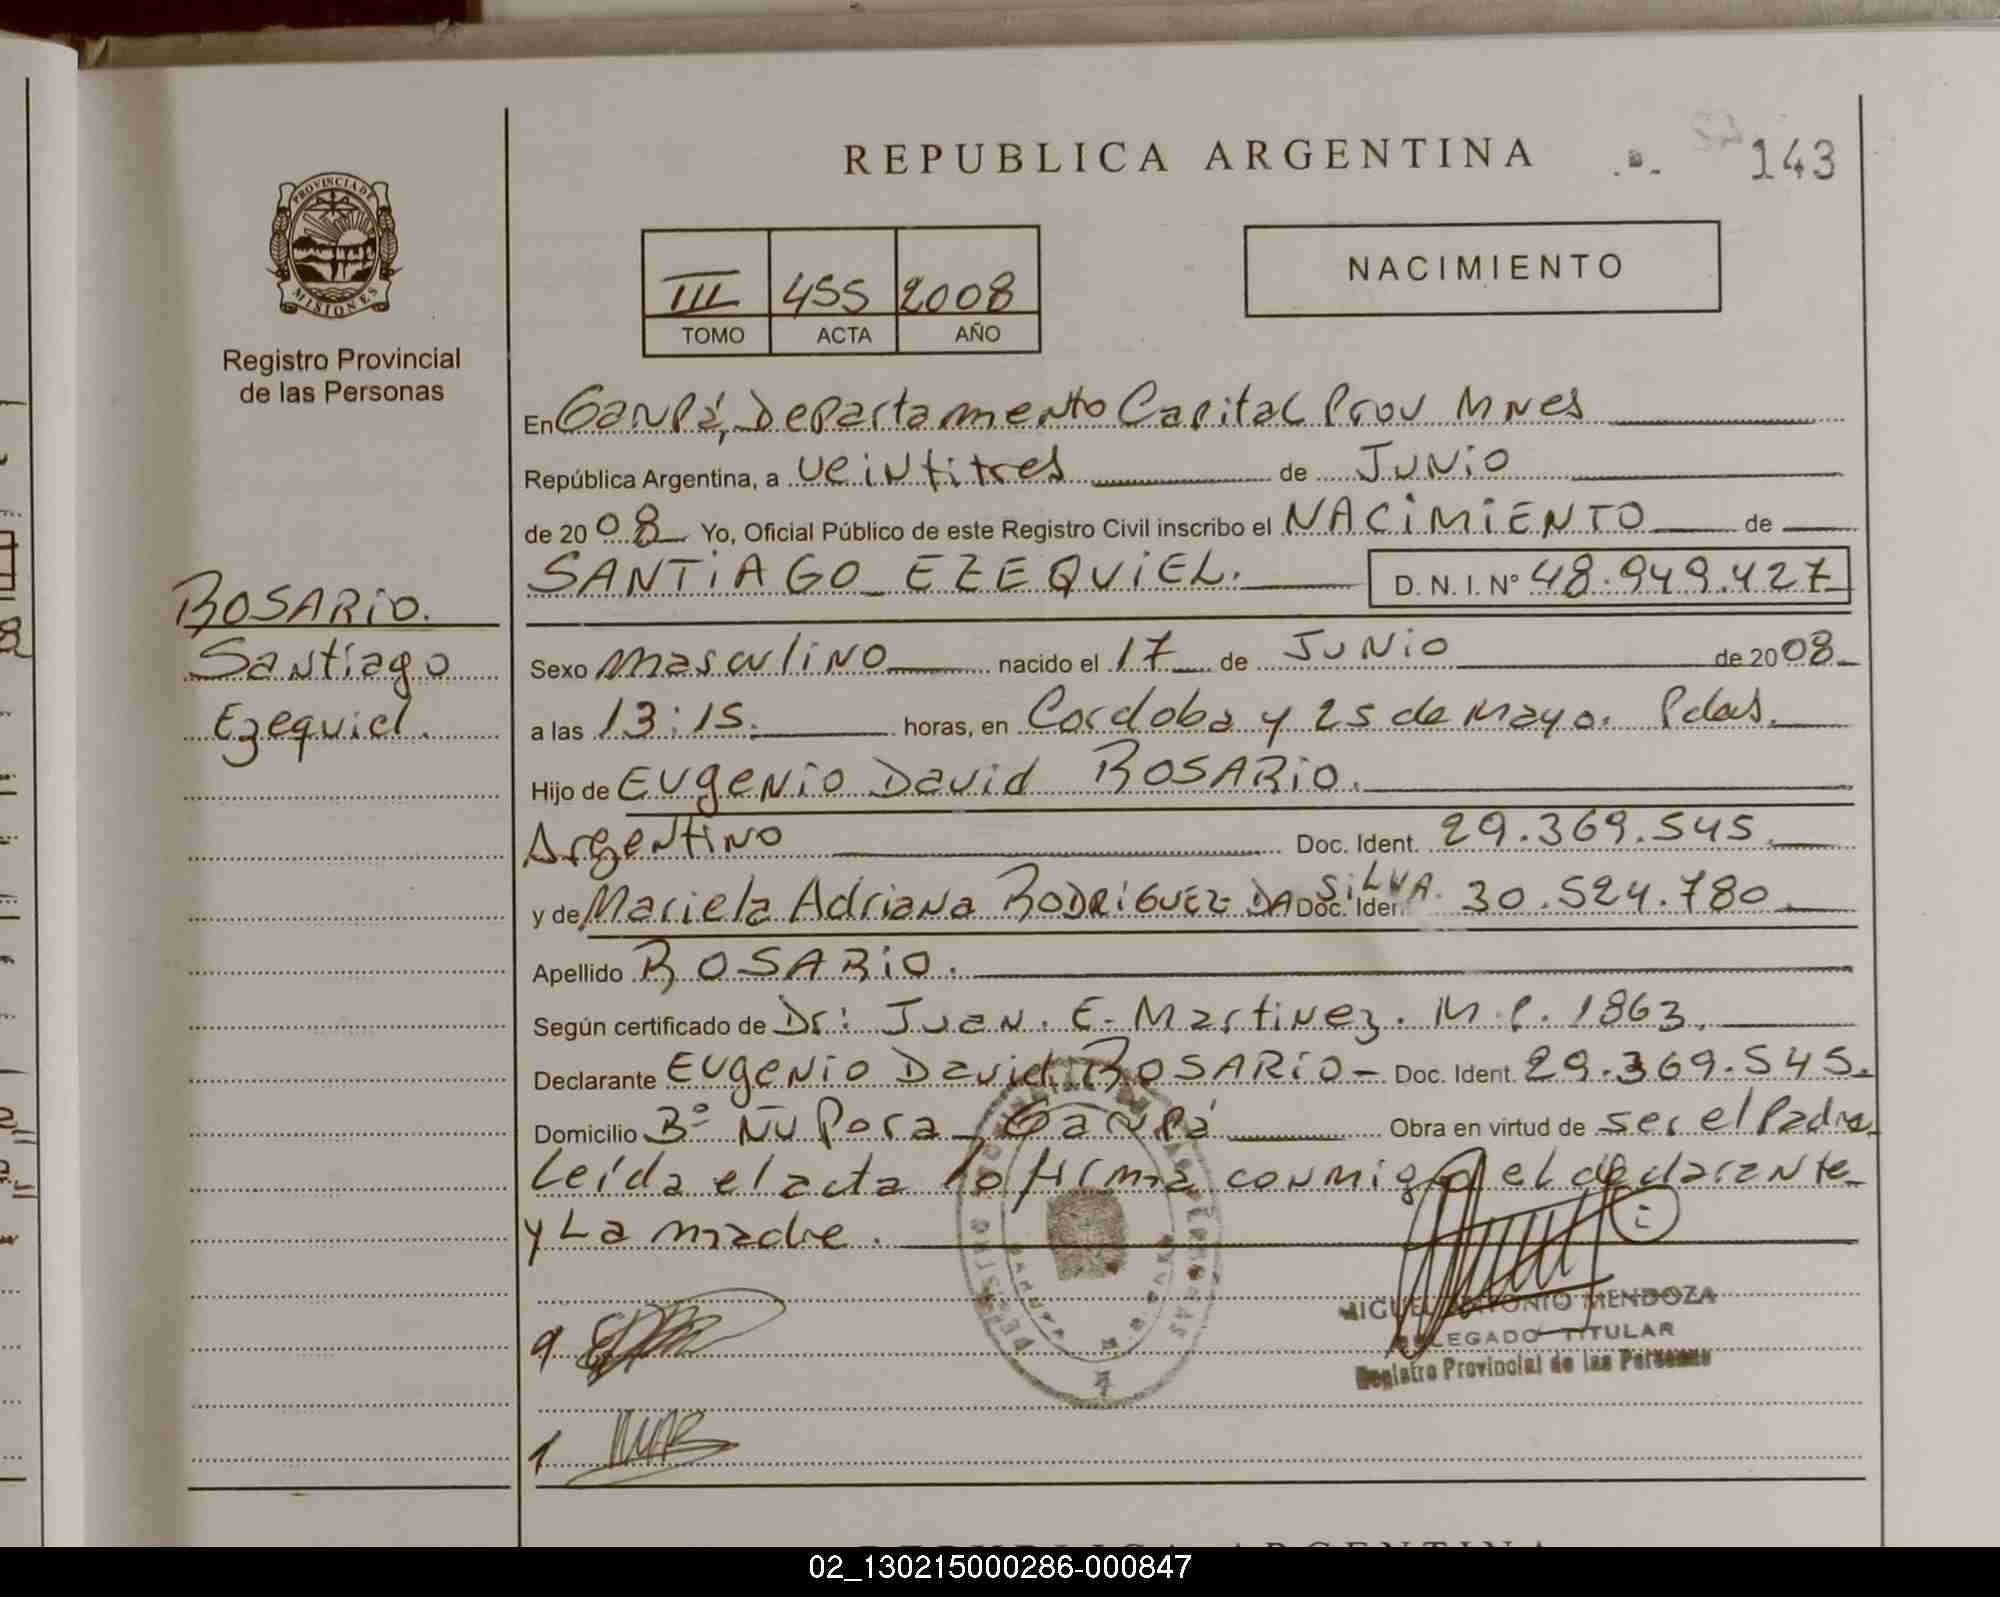 REPUBLICA ARGENTINA
143
PROVINCIA DE
MISIONES
Registro Provincial
de las Personas
III 455 2008
TOMO ACTA AÑO
NACIMIENTO
En Garupá, Departamento Capital Prov Mnes
República Argentina, a veintitres de Junio
de 2008 Yo, Oficial Público de este Registro Civil inscribo el NACIMIENTO de
SANTIAGO EZEQUIEL. D. N. I. N° 48.949.427
ROSARIO.
Santiago
Ezequiel.
Sexo masculino nacido el 17 de Junio de 2008
a las 13:15. horas, en Cordoba y 25 de Mayo. Pdas.
Hijo de Eugenio David ROSARIO.
Argentino Doc. Ident. 29.369.545
y de Mariela Adriana RODRIGUEZ DA SILVA. Doc. Iden 30.524.780
Apellido ROSARIO.
Según certificado de Dr: Juan. E. Martinez. M.P. 1863.
Declarante Eugenio David ROSARIO - Doc. Ident. 29.369.545.
Domicilio B° Ñu Pora - Garupá Obra en virtud de ser el Padre
Leída el acta lo firma conmigo el declarante
y La madre.
MIGUEL ANTONIO MENDOZA
DELEGADO TITULAR
Registro Provincial de las Personas
REPUBLICA ARGENTINA
02_130215000286-000847